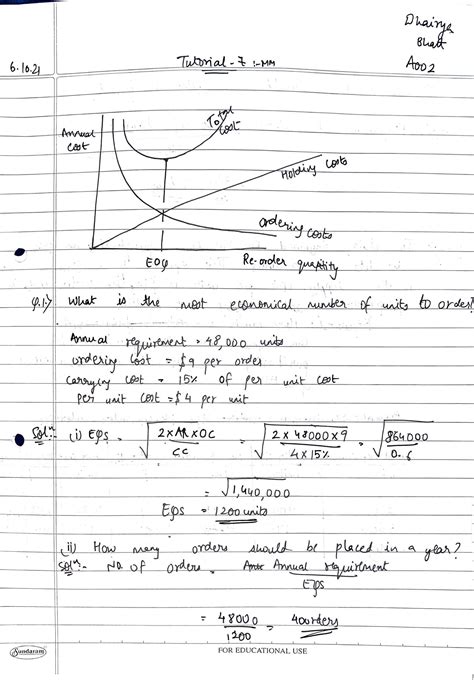 Dhairya
Bhatt
A002
6.10.21
Tutorial - 7 :- MM
Annual
Cost
Total
Cost
Holding costs
Ordering costs
EOQ
Re-order quantity
Q.1:) What is the most economical number of units to order?
Annual requirement = 48,000 units
ordering cost = $9 per order
Carrying cost = 15% of per unit cost
Per unit cost = $4 per unit
Solⁿ:- (i) EOQ = √(2×AR×OC / CC) = √(2×48000×9 / 4×15%) = √(864000 / 0.6)
= √1,440,000
EOQ = 1200 units
(ii) How many orders should be placed in a year?
Solⁿ:- No. of orders = Annual requirement
EOQ
= 48000 / 1200 = 40 orders
Sundaram
FOR EDUCATIONAL USE